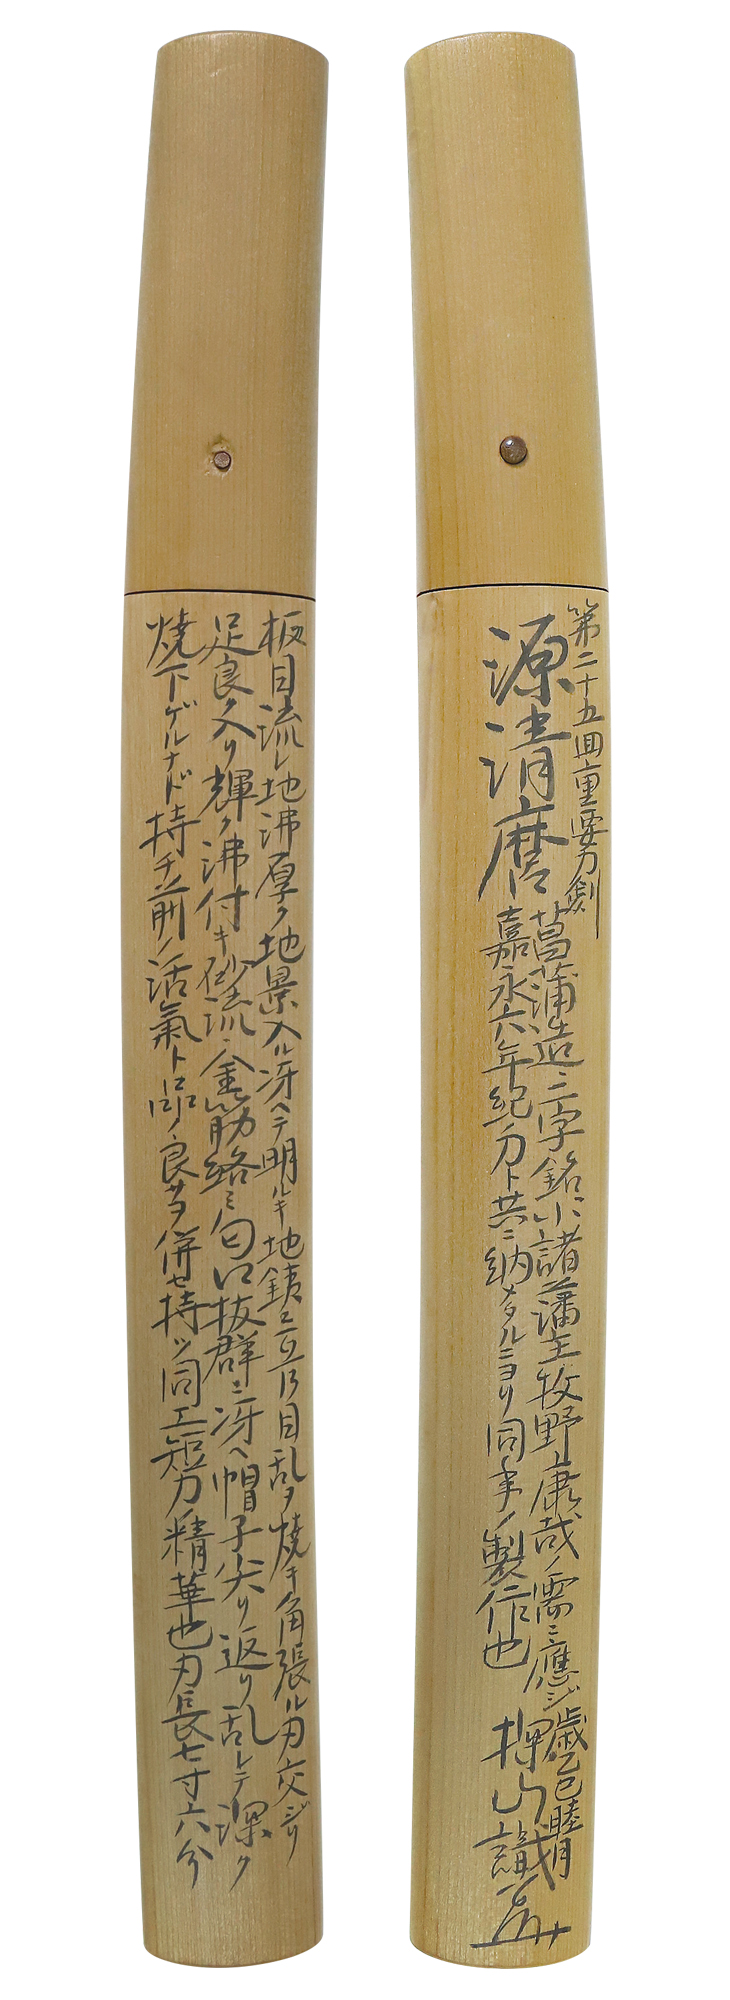 第二十五回重要刀剣
源清麿
菖蒲造ニ二字銘ニ小諸藩主牧野康哉ノ需ニ應ジ
嘉永六年紀ノ刀ト共ニ納メタルニヨリ同年ノ製作也
歳乙巳睦月
探山識
板目流レ地沸厚ク地景入ル冴ヘテ明ルキ地鉄ニ互ノ目乱ヲ焼キ角張ル刃交ジリ
足良ク入リ輝ク沸付キ砂流シ金筋絡ミ匂口抜群ニ冴ヘ帽子尖リ返リ乱レテ深ク
焼下ゲルナド持チ前ノ活氣ト品ノ良サヲ併セ持ツ同工短刀ノ精華也刃長七寸六分